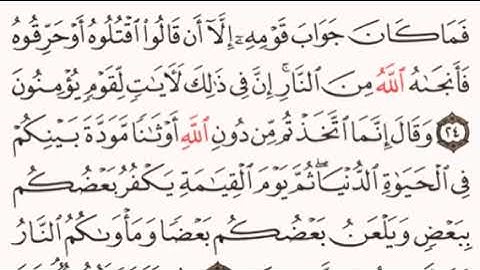 فَمَا كَانَ جَوَابَ قَوْمِهِۦٓ إِلَّآ أَن قَالُوا۟ ٱقْتُلُوهُ أَوْ حَرِّقُوهُ
فَأَنجَىٰهُ ٱللَّهُ مِنَ ٱلنَّارِ ۚ إِنَّ فِى ذَٰلِكَ لَـَٔايَٰتٍ لِّقَوْمٍ يُؤْمِنُونَ
٢٤ وَقَالَ إِنَّمَا ٱتَّخَذْتُم مِّن دُونِ ٱللَّهِ أَوْثَٰنًا مَّوَدَّةَ بَيْنِكُمْ
فِى ٱلْحَيَوٰةِ ٱلدُّنْيَا ۖ ثُمَّ يَوْمَ ٱلْقِيَٰمَةِ يَكْفُرُ بَعْضُكُم
بِبَعْضٍ وَيَلْعَنُ بَعْضُكُم بَعْضًا وَمَأْوَىٰكُمُ ٱلنَّارُ